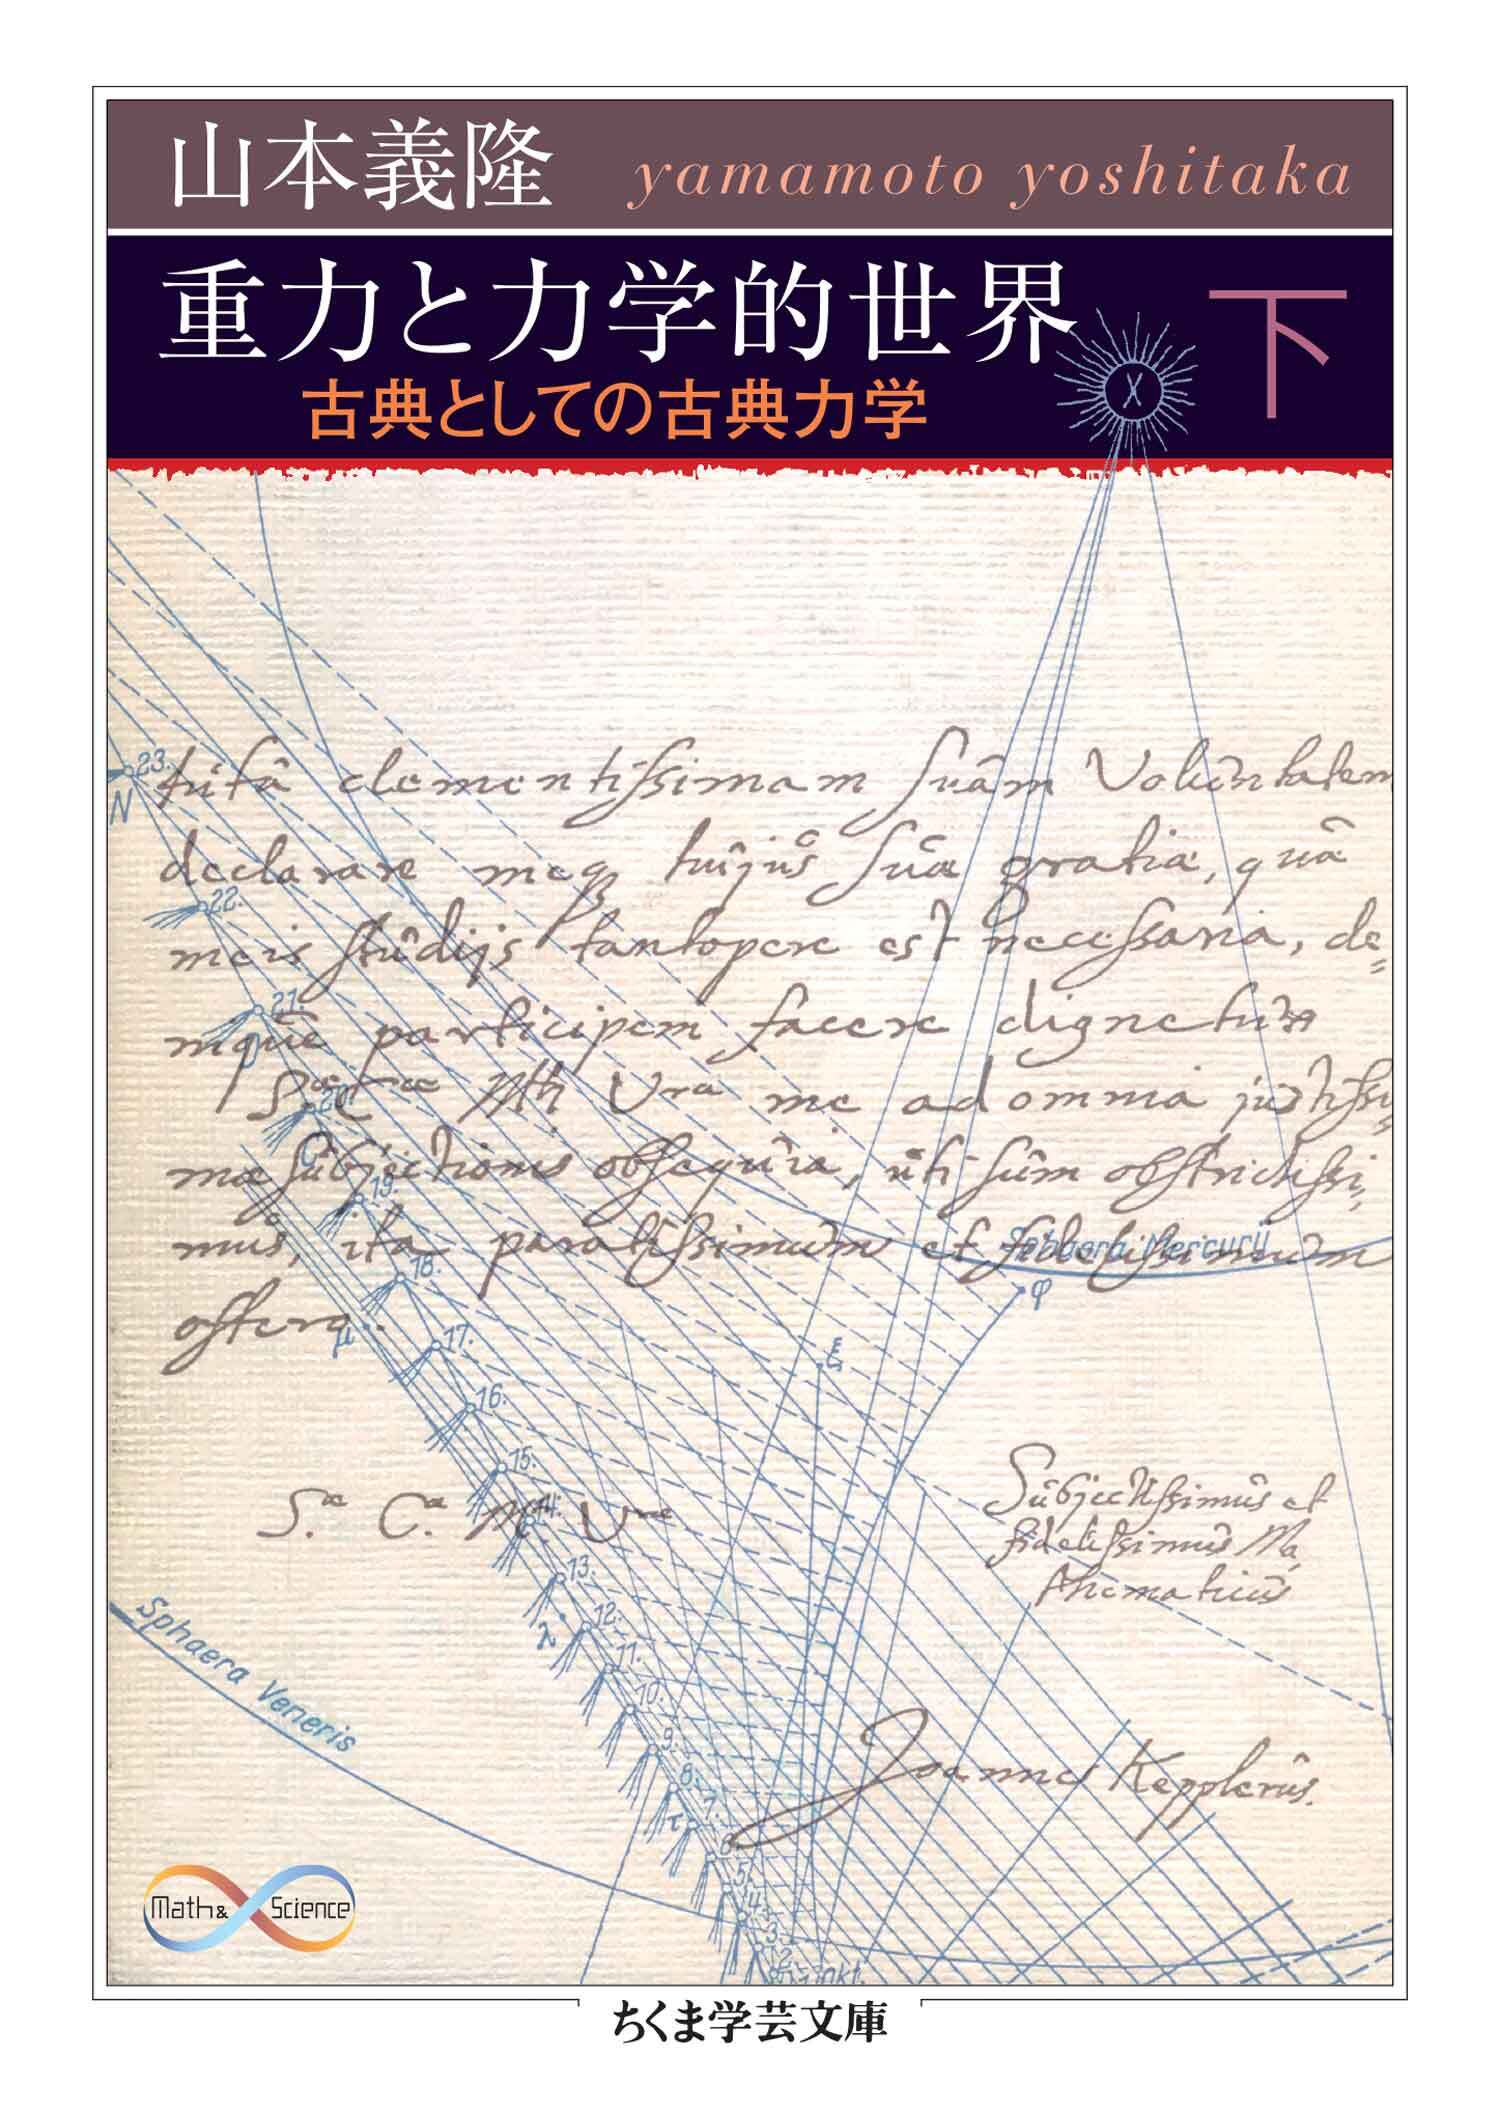 山本義隆 yamamoto yoshitaka
重力と力学的世界 下
古典としての古典力学
23.
N
tuita clementissimam suam Voluntatem
declarare meq hujus suæ gratiæ, quâ
22.
meis studijs tantopere est necessaria, de=
21.
mque participem facere dignetur
20.
Mtti Vræ me ad omnia
mæ subjectionis obsequia, uti sum obstrictissi=
19.
mus, ita paratissimum et fidelissimum
Sphaera Mercurii
18.
φ
offero.
μ
17.
ξ
16.
15.
S. C. M. V
14.
Subjectissimus et
fidelissimus Ma
thematicus
13.
12.
λ
11.
Sphaera Veneris
10.
9.
Joannes Kepplerus.
8.
τ
7.
6
5
4
3
2
Math & Science
ちくま学芸文庫